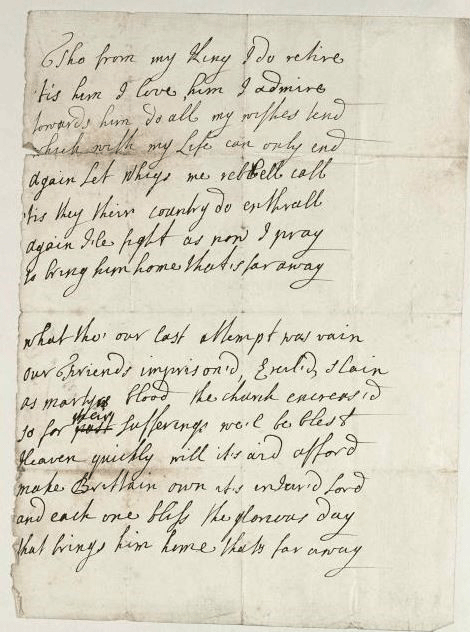 Tho from my King I do retire
'tis him I love, him I admire
towards him do all my wishes tend
which with my Life can only end
again Let Whigs me rebbell call
'tis they their country do enthrall
again I'le fight as now I pray
to bring him home that's far away
what tho' our last attempt was vain
our Friends imprison'd, Exil'd, slain
as martyrs blood the church encreas'd
so for their past sufferings we'l be blest
Heaven quickly will it's aid afford
make Brittain own it's injur'd Lord
and each one bless the glorious day
that brings him home thats far away